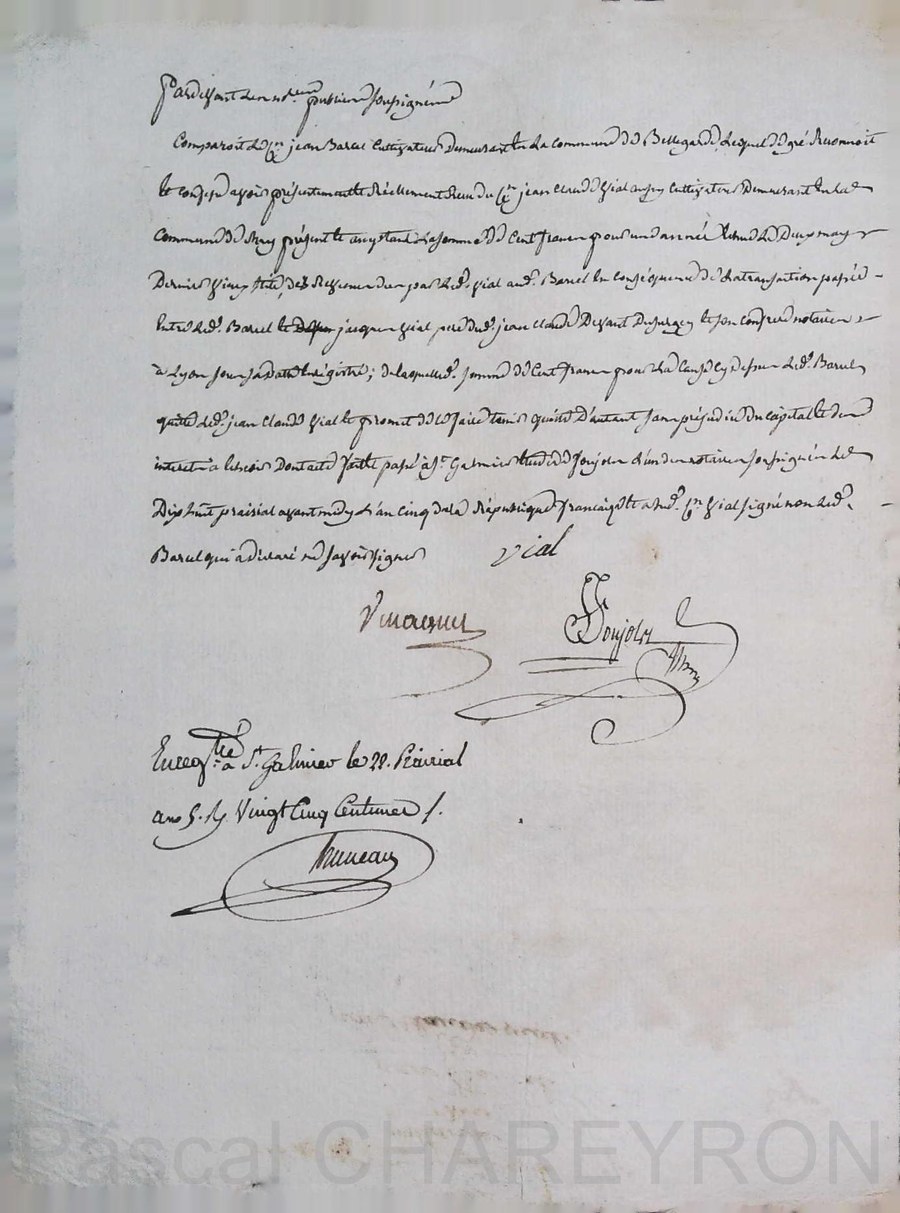 Pardevant les not.res publics soussignés
Comparoit le C.en jean Barcel Cultivateur Demeurant en la commune de Bellegarde, lequel de gré Reconnoit
et confesse avoir présentement et Réellement Reçu du C.en jean Claude Vial aussy Cultivateur Demeurant en la
Commune de présent et acceptant la somme de Cent francs pour une année échue le Deux may
Dernier vieux stile, des par led. Vial aud. Barcel en conséquence de la transaction passée
Entre led. Barcel et jacques Vial pere dud. jean Claude Devant Dujurgey et son confrere notaires
a Lyon sous sa datte Enrégistré; de laquelle d. somme de Cent francs pour la Cause Cy dessus led. Barcel
quitte led. jean Claude Vial et promet de le faire tenir quitte D'autant sans préjudice du Capital et des
interets a échoir Dont acte fait et passé à S.t Galmier étude de Soujols l'un des notaires soussignés le
Dix huit prairial avant midy l'an cinq de la République francaise et a led. C.en Vial signé non led.
Barcel qui a declaré ne savoir signer
Vial
Soujols
Enregt.ré a S.t Galmier le 22. Prairial
an 5. R. Vingt Cinq Centimes
Pascal CHAREYRON